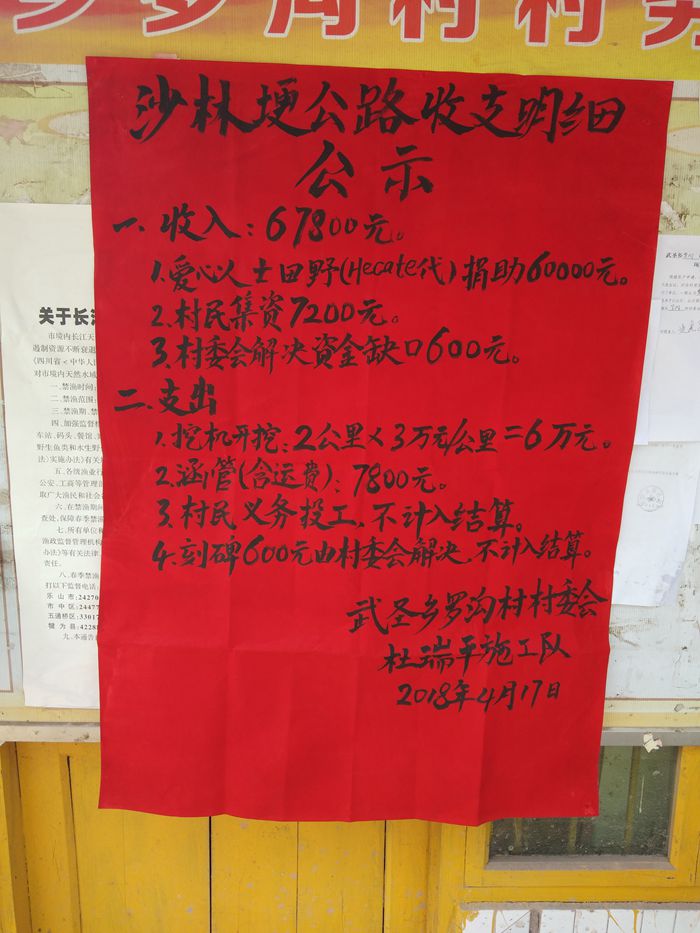 罗沟村村务
沙林埂公路收支明细
公示
一.收入:67800元。
1.爱心人士田野(Hecate代)捐助60000元。
2.村民集资7200元。
3.村委会解决资金缺口600元。
二.支出
1.挖机开挖:2公里×3万元/公里=6万元。
2.涵管(含运费):7800元。
3.村民义务投工,不计入结算。
4.刻碑600元由村委会解决,不计入结算。
武圣乡罗沟村村委会
杜瑞平施工队
2018年4月17日
关于长江
市境内长江天
遏制资源不断衰退
《四川省<中华人民
对市境内天然水域
一.禁渔时间:
二.禁渔范围:
三.禁渔期、禁
四.加强监督
车站、码头、餐馆、
野生鱼类和水生野
法》实施办法》有关
五.各级渔业行
公安、工商等管理
取广大渔民和社会
六.在禁渔期间
查处,保障春季禁渔
七.所有单位和
渔政监督管理机构
办法》等有关法律、
责任。
八.春季禁渔
打以下监督电话:
乐山市:24270
市中区:2447
五通桥区:33017
犍为县:42288
九.本通告自